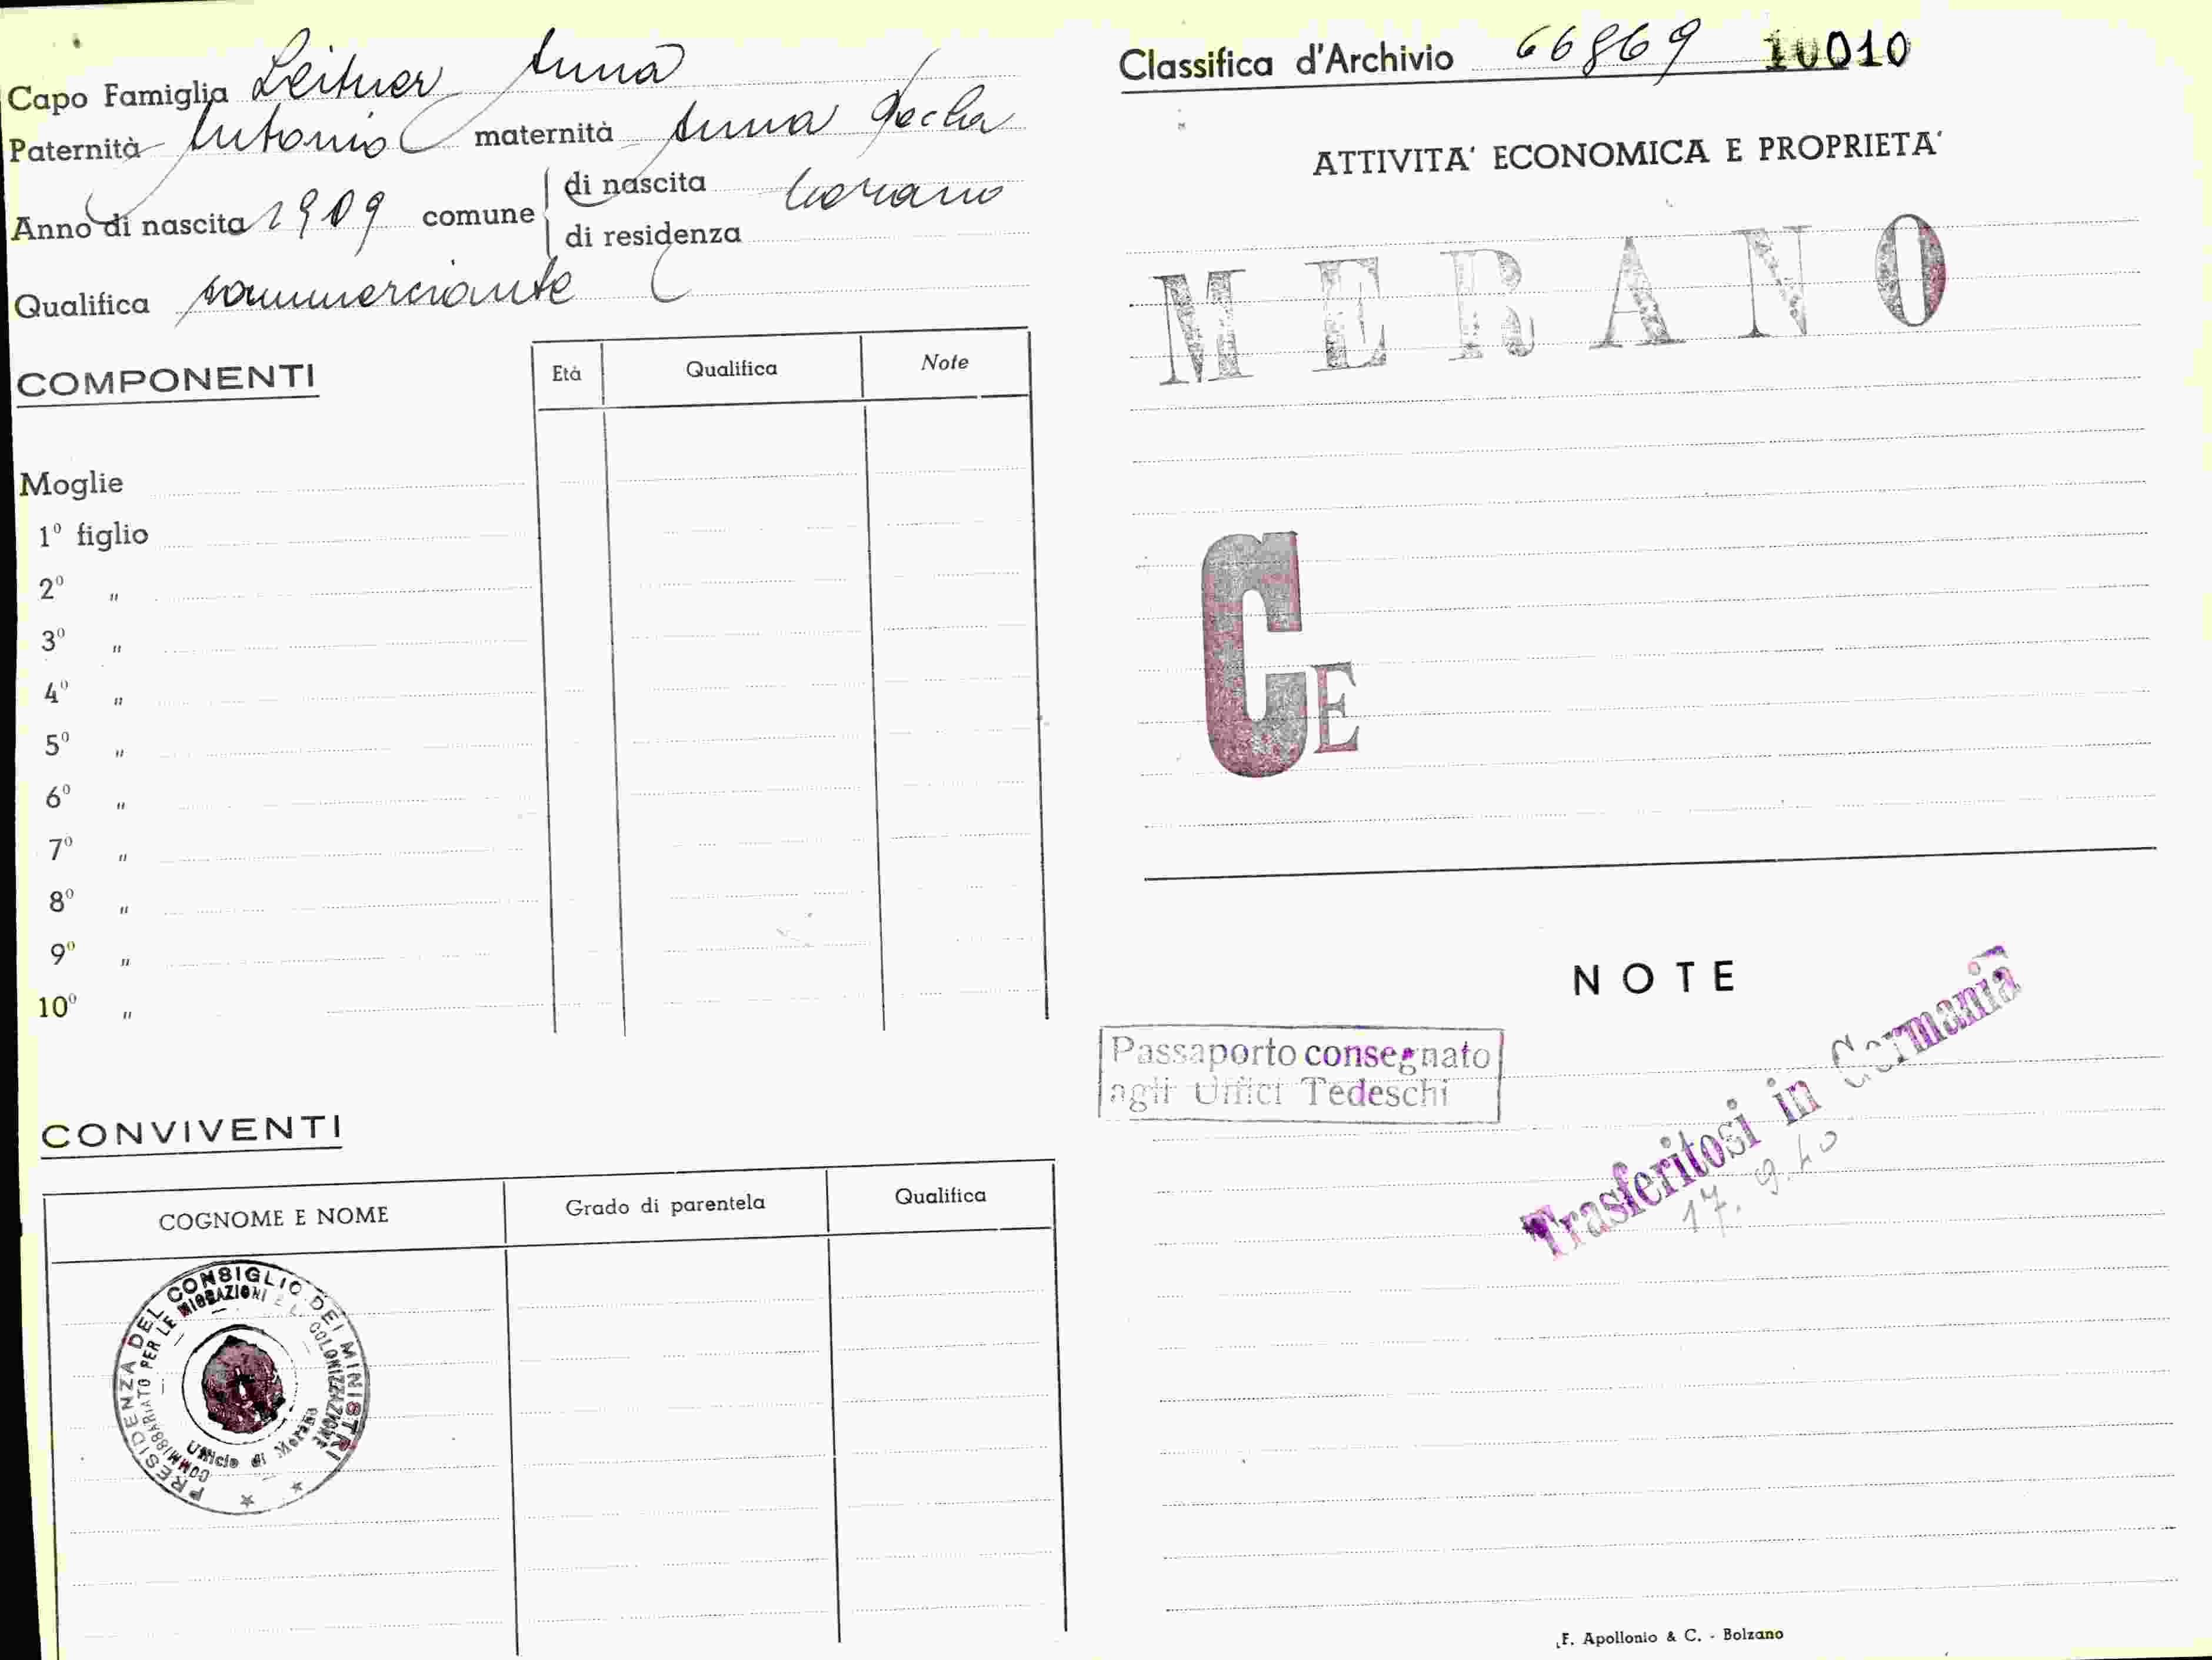 Capo Famiglia Leitner Anna
Paternità Antonio maternità Anna
Anno di nascita 1909 comune di nascita Merano
di residenza
Qualifica commerciante
COMPONENTI
Età Qualifica Note
Moglie
1º figlio
2º "
3º "
4º "
5º "
6º "
7º "
8º "
9º "
10º "
CONVIVENTI
COGNOME E NOME Grado di parentela Qualifica
PRESIDENZA DEL CONSIGLIO DEI MINISTRI
COMMISSARIATO PER LE MIGRAZIONI E L COLONIZZAZIONE
Ufficio di Merano
Classifica d'Archivio 66869 10010
ATTIVITA' ECONOMICA E PROPRIETA'
MERANO
CE
NOTE
Passaporto consegnato
agli Uffici Tedeschi
Trasferitosi in Germania
17. 9. 40
F. Apollonio & C. - Bolzano